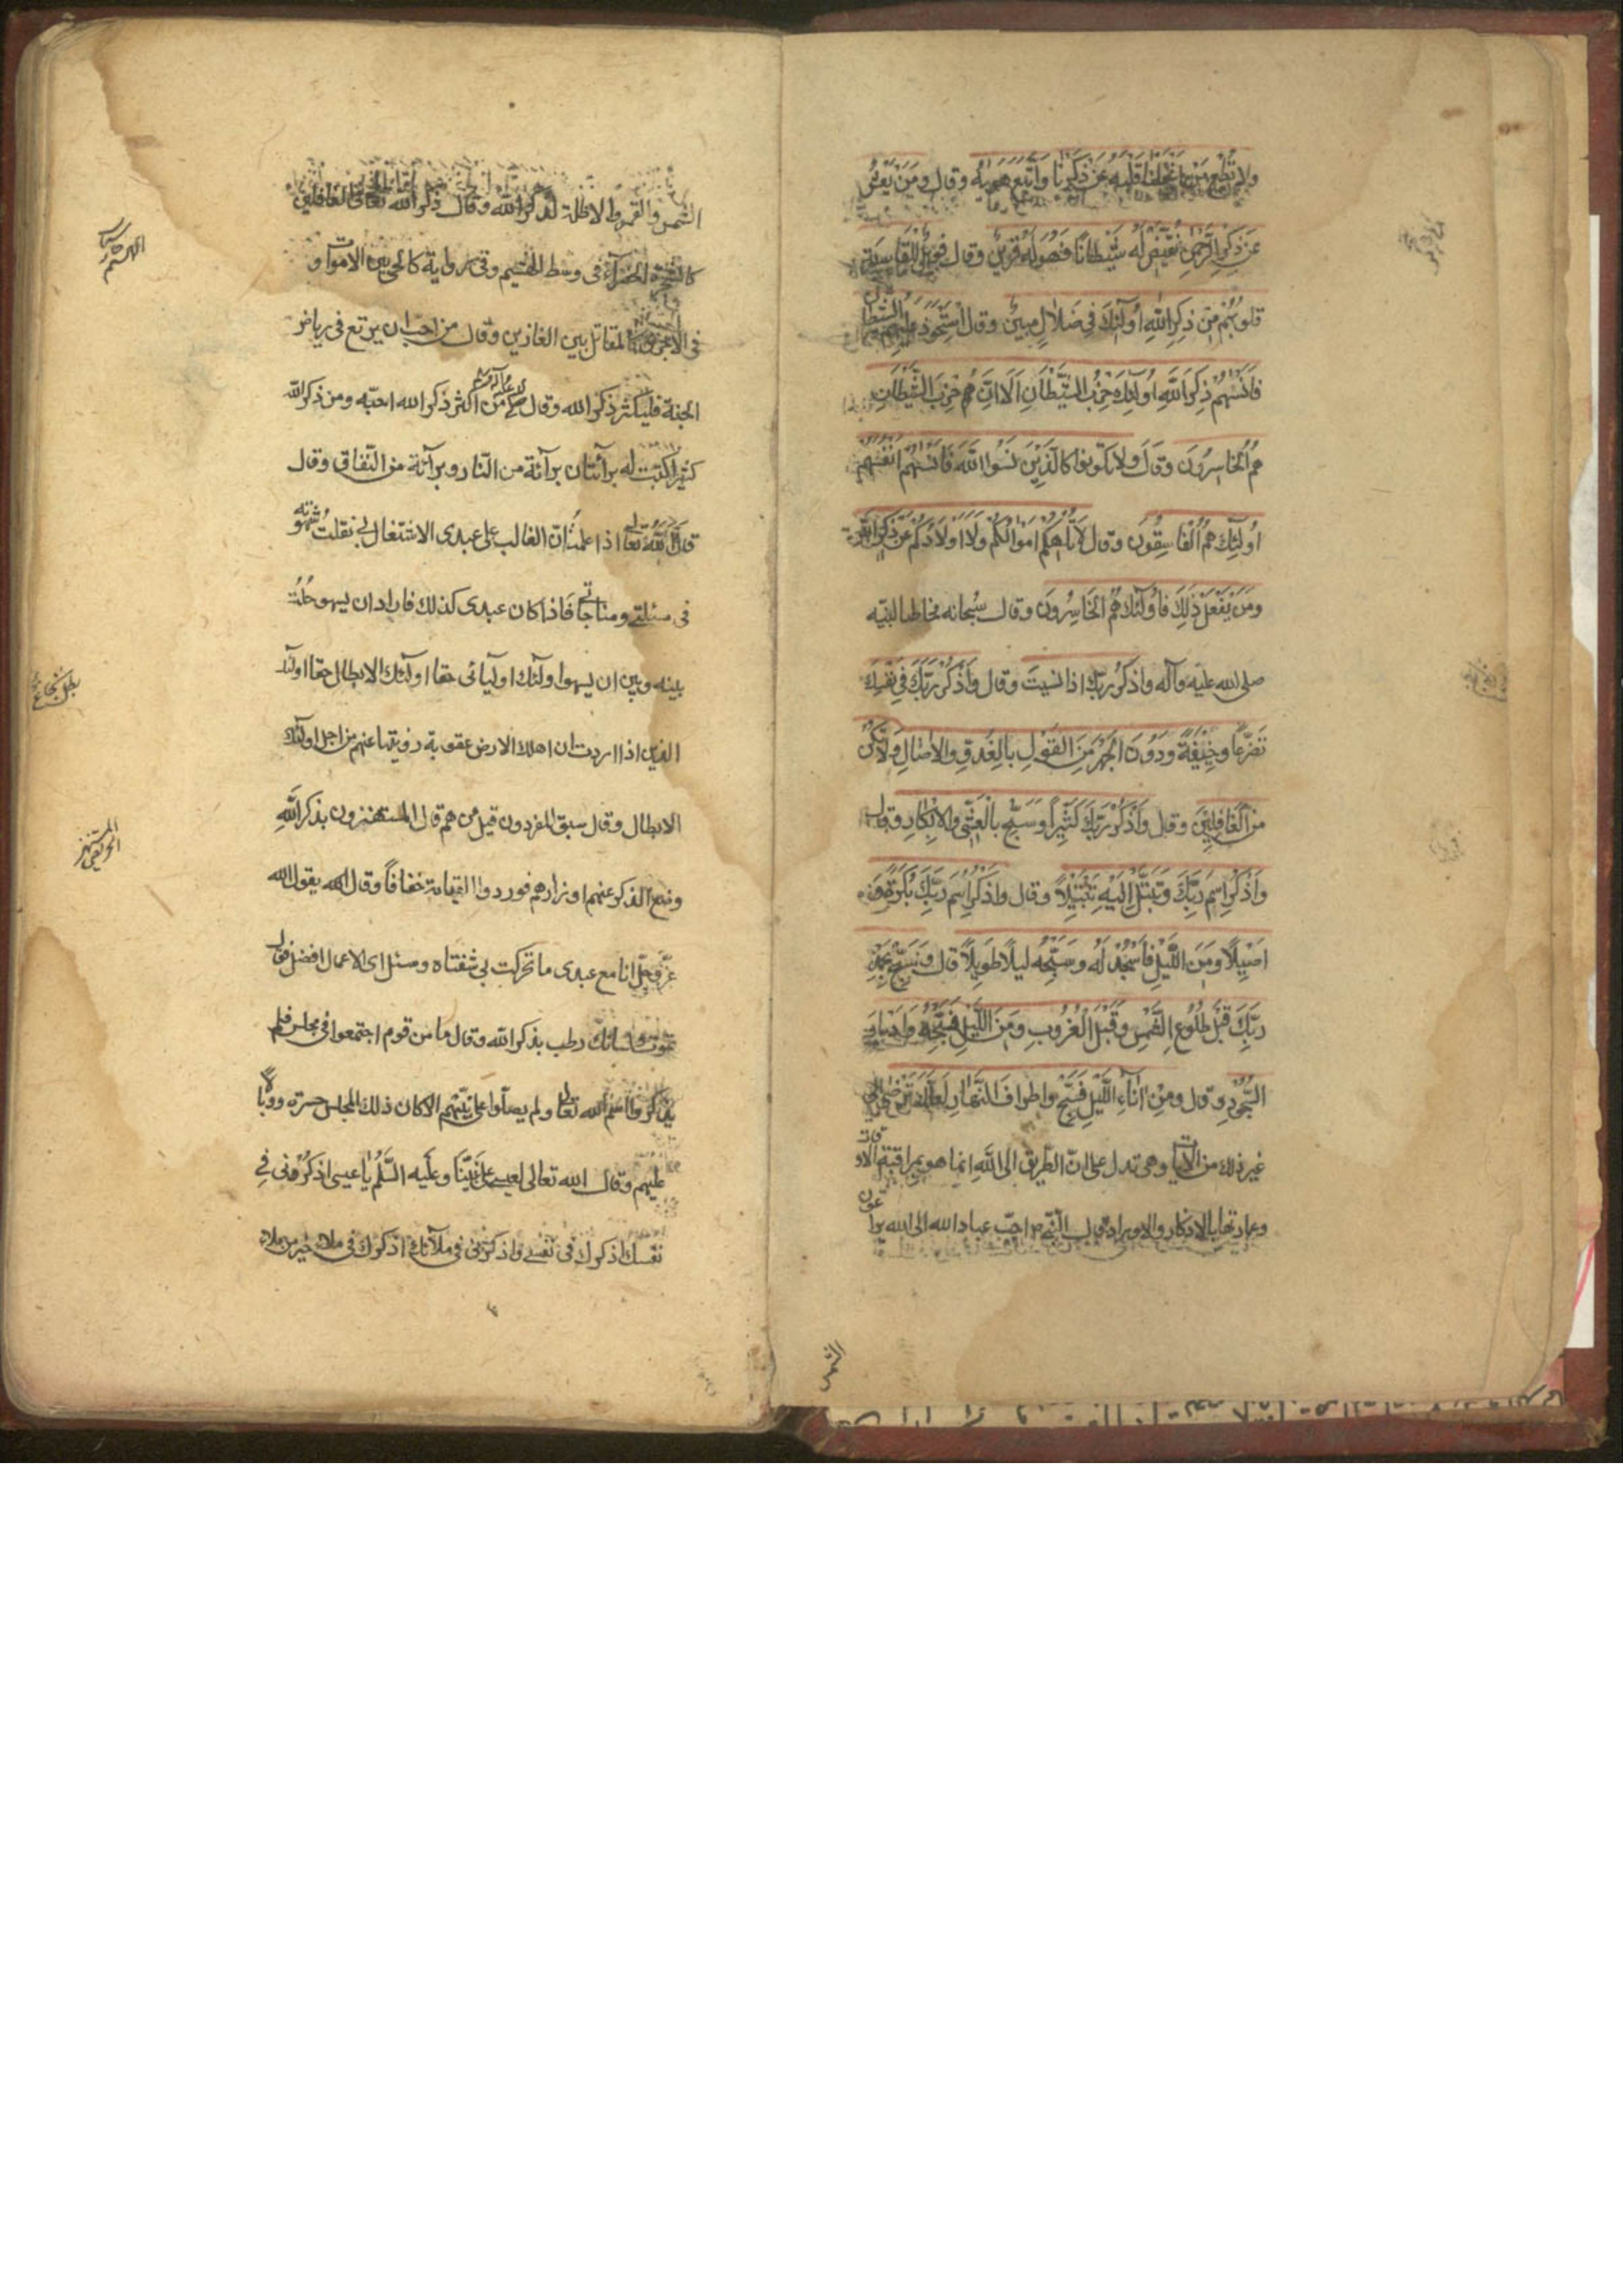 ولا تطع من اغفلنا قلبه عن ذكرنا واتبع هويه وقال ومن يعش
عن ذكر الرحمن نقيض له شيطانا فهو له قرين وقال فويل للقاسية
قلوبهم من ذكر الله اولئك في ضلال مبين وقال استحوذ عليهم الشيطان
فانسيهم ذكر الله اولئك حزب الشيطان الا ان حزب الشيطان
هم الخاسرون وقال ولا تكونوا كالذين نسوا الله فانسيهم انفسهم
اولئك هم الفاسقون وقال لا تلهكم اموالكم ولا اولادكم عن ذكر الله
ومن يفعل ذلك فاولئك هم الخاسرون وقال سبحانه مخاطبا لنبيه
صلى الله عليه وآله واذكر ربك اذا نسيت وقال واذكر ربك في نفسك
تضرعا وخيفة ودون الجهر من القول بالغدو والاصال ولا تكن
من الغافلين وقال واذكر ربك كثيرا وسبح بالعشي والابكار وقال
واذكر اسم ربك وتبتل اليه تبتيلا وقال واذكر اسم ربك بكرة و
اصيلا ومن الليل فاسجد له وسبحه ليلا طويلا قال وسبح بحمد
ربك قبل طلوع الشمس وقبل الغروب ومن الليل فسبحه وادبار
السجود وقال ومن اناء الليل فسبح واطراف النهار لعلك ترضى الى
غير ذلك من الآيات وهي تدل على ان الطريق الى الله انما هو بمراقبة الاوقات
وعمارتها بالاذكار والاوراد قال النبي ص احب عباد الله الى الله يراعون
الشمس
الشمس والقمر والاظلة لذكر الله وقال ذكر الله تعالى في الغافلين
كالشجرة الخضراء في وسط الهشيم وفي رواية كالحي بين الاموات و
في الاخرى كالمقاتل بين الغازين وقال من احب ان يرتع في رياض
الجنة فليكثر ذكر الله وقال من اكثر ذكر الله احبه ومن ذكر الله
كثيرا كتبت له برائتان برآئة من النار وبرآئة من النفاق وقال
قال الله تعالى اذا علمت ان الغالب على عبدي الاشتغال بي نقلت شهوته
في مسئلتي ومناجاتي فاذا كان عبدي كذلك فاراد ان يسهو حلت
بينه وبين ان يسهو اولئك اوليائي حقا اولئك الابطال حقا اولئك
الذين اذا اردت ان اهلك الارض عقوبة زويتها عنهم من اجل اولئك
الابطال وقال سبق المفردون قيل من هم قال المستهترون بذكر الله
وضع الذكر عنهم اوزارهم فوردوا القيامة خفافا وقال الله يقول الله
عز وجل انا مع عبدي ما تحركت بي شفتاه وسئل اي الاعمال افضل فقال
تموت ولسانك رطب بذكر الله وقال ما من قوم اجتمعوا في مجلس فلم
يذكروا اسم الله تعالى ولم يصلوا على نبيهم الا كان ذلك المجلس حسرة ووبالا
عليهم وقال الله تعالى لعيسى على نبينا وعليه السلم يا عيسى اذكرني في
نفسك اذكرك في نفسي واذكرني في ملائك اذكرك في ملاء خير من ملاء